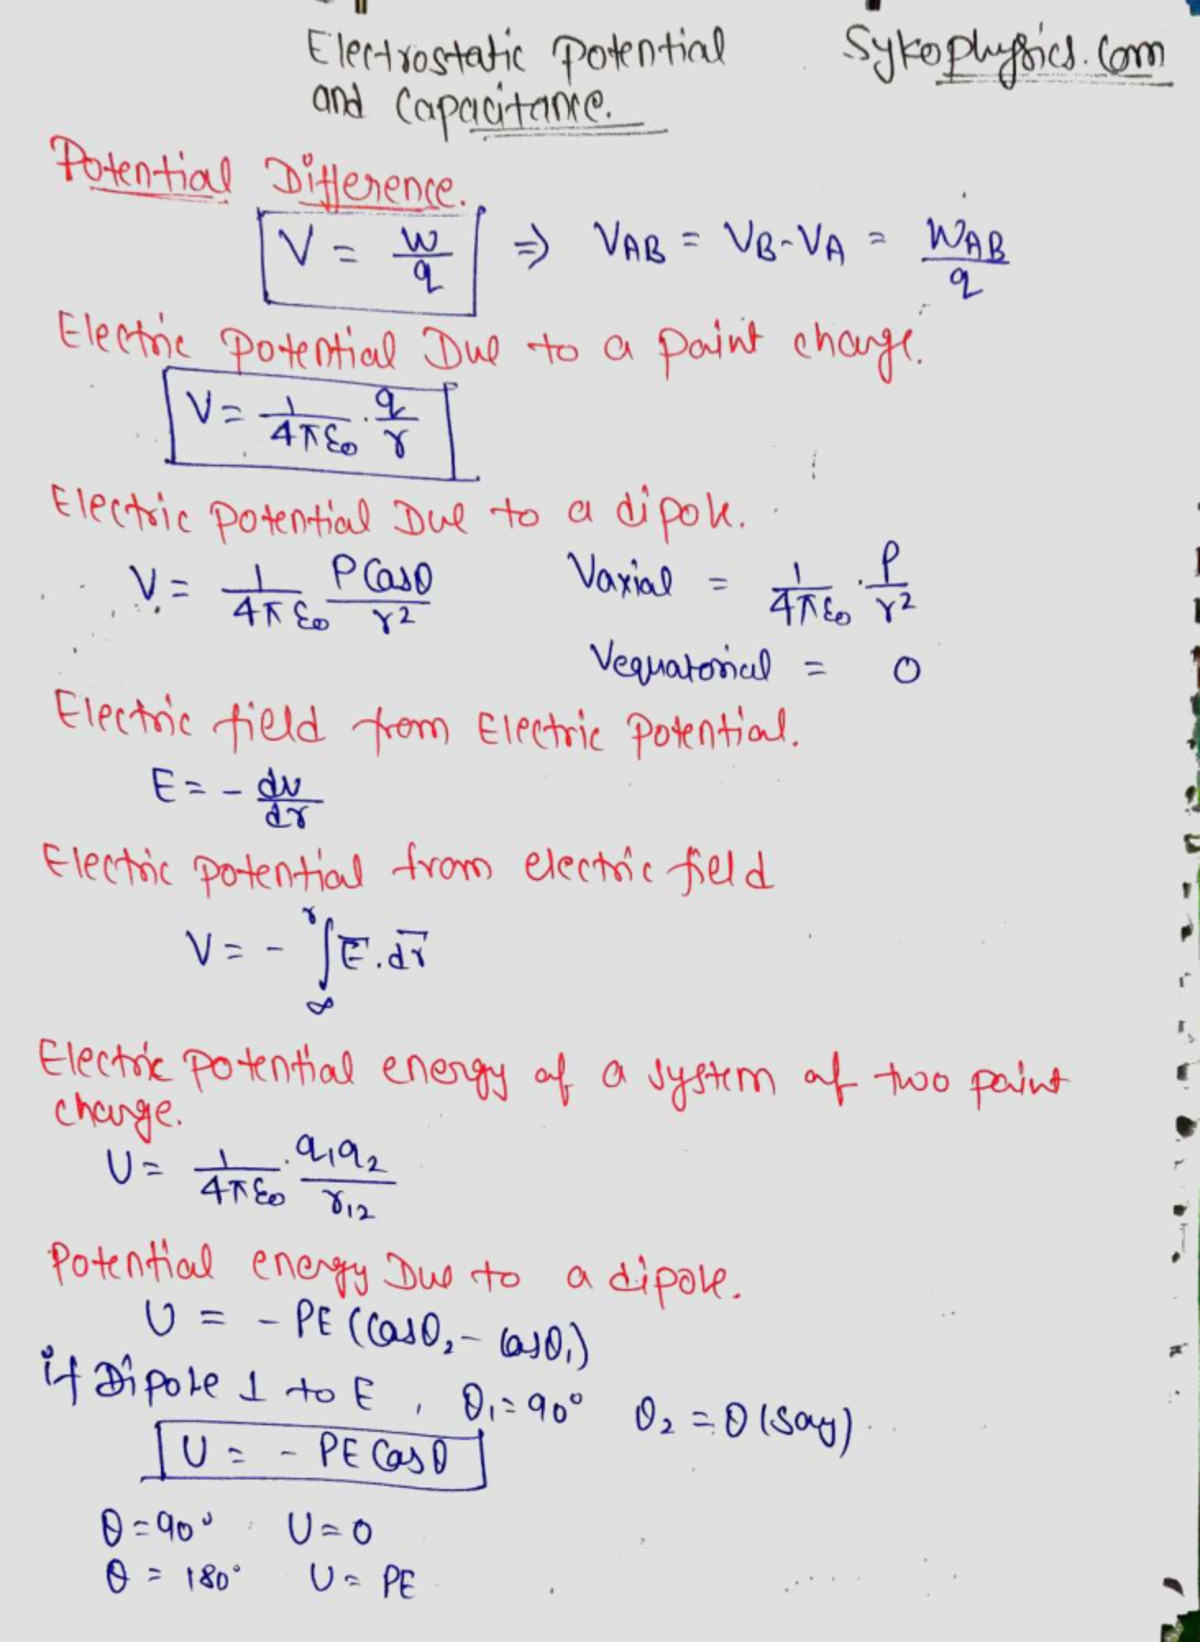 Electrostatic Potential
and Capacitance.
Sykophysics.Com
Potential Difference.
V = W/q ⇒ VAB = VB-VA = WAB/q
Electric Potential Due to a Point charge.
V = 1/4πε0 . q/r
Electric Potential Due to a dipole.
V = 1/4πε0 PCosθ/r²
Vaxial = 1/4πε0 . P/r²
Vequatorial = 0
Electric field from Electric Potential.
E = - dv/dr
Electric Potential from electric field
V = - ∫∞^r E.dr
Electric Potential energy of a system of two point
charge.
U = 1/4πε0 . q1q2/r12
Potential energy Due to a dipole.
U = - PE (Cosθ2 - Cosθ1)
if Dipole ⊥ to E , θ1 = 90° θ2 = θ (say)
U = - PE Cosθ
θ = 90° U = 0
θ = 180° U = PE